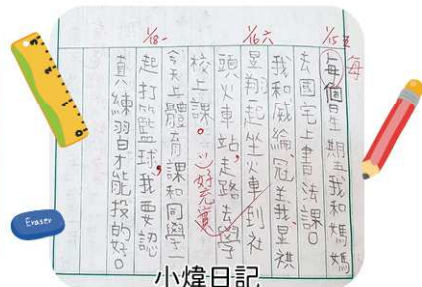 1/15 五
每
每個星期五我和媽媽
去國宅上書法課。
1/16 六
我和威綸、冠羊我星祺
昱翔起坐火車到社
頭火車站,走路去學
校上課。:)好充實
1/18 一
今天上體育課和同學一
起打篮球,我要認
真練習才能投的好。
Eraser
小煒日記